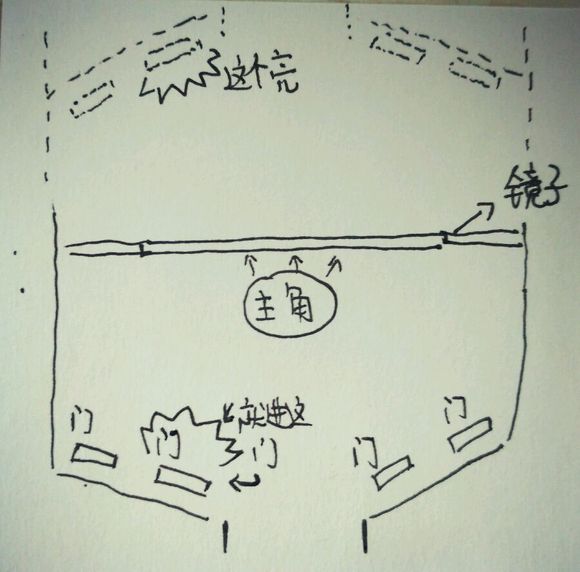 这个亮
镜子
主角
应进这
门
门
门
门
门